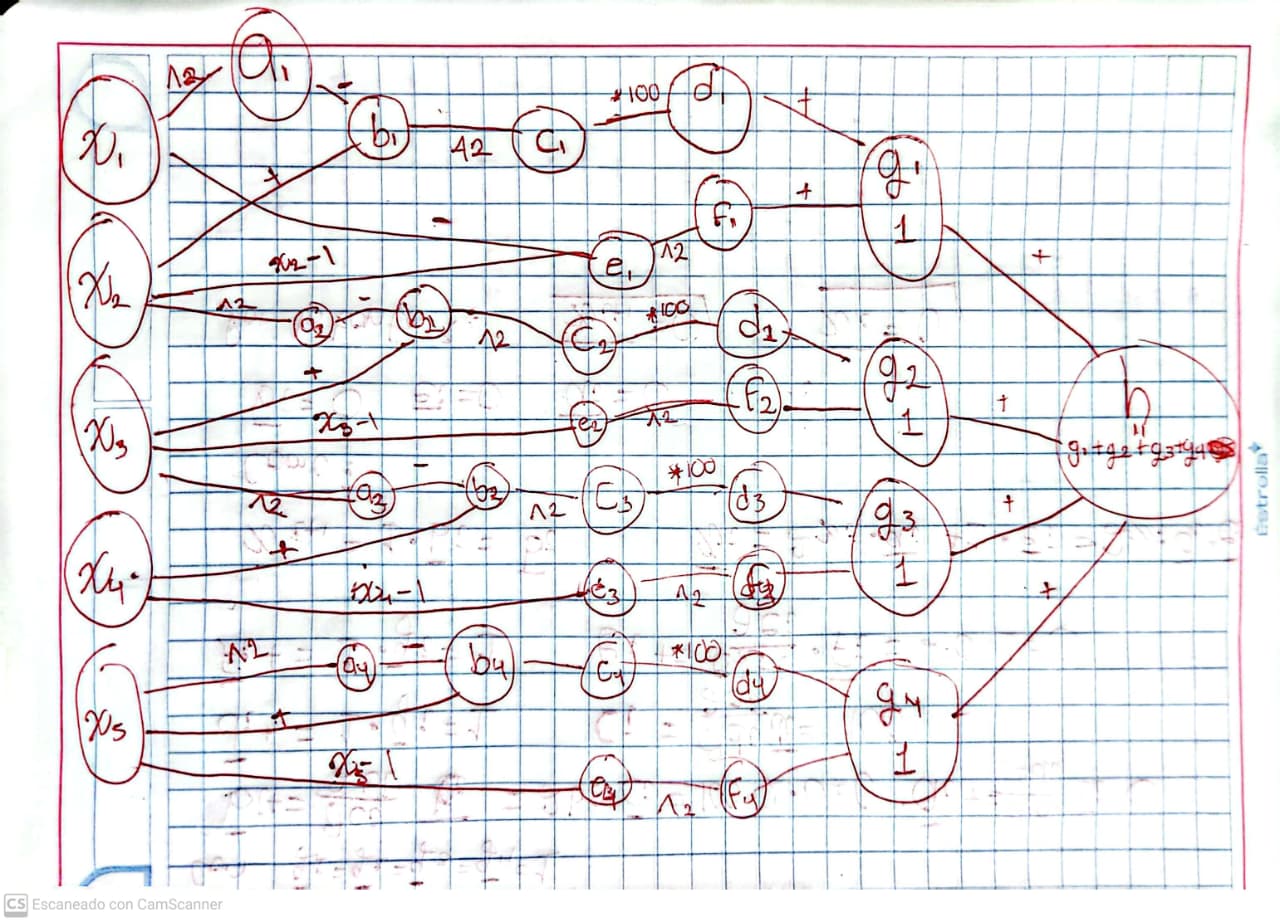 ^2
a1
-
x1
b1
^2
c1
*100
d1
+
g1
1
+
f1
+
-
e1
^2
+
x2
x2-1
^2
a2
-
b2
^2
c2
*100
d2
g2
1
+
h
"
g1+g2+g3+g4
x3
+
x3-1
e2
^2
f2
^2
a3
-
b3
^2
c3
*100
d3
g3
1
+
x4
+
x4-1
e3
^2
+
^2
a4
-
b4
c4
*100
d4
g4
1
x5
+
x5-1
e4
^2
f4
Estrella
CS Escaneado con CamScanner